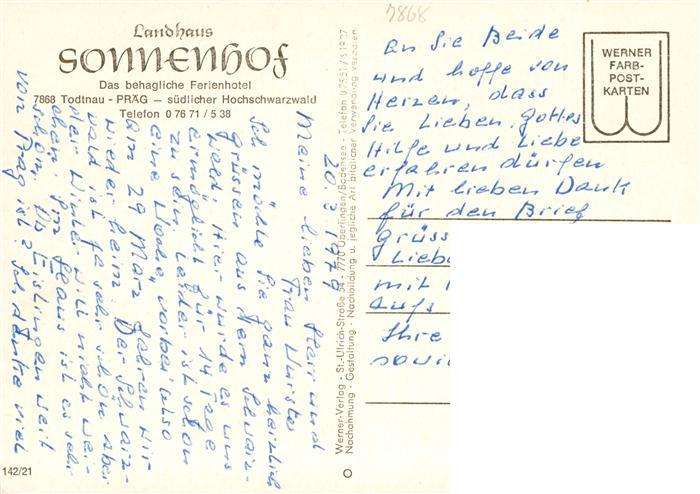 7868
Landhaus
SONNENHOF
Das behagliche Ferienhotel
7868 Todtnau - PRÄG — südlicher Hochschwarzwald
Telefon 0 76 71 / 5 38
WERNER
FARB-
POST-
KARTEN
20.3.1979
Meine lieben Herr und
Frau Wurster
Ich möchte Sie ganz herzlich
grüssen aus dem Schwarz-
wald. Hier wurde es uns
ermöglicht für 14 Tage
zu sein. Leider ist schon
eine Woche vorbei also
am 29 März fahren wir
wieder heim. Der Schwarz-
wald ist ja sehr schön aber
der Winter will nicht wei-
chen. Im Haus ist es sehr
schön. Ob Eislingen weit
von Präg ist? Ich denke viel
an Sie Beide
und hoffe von
Herzen, dass
Sie Lieben Gottes
Hilfe und Liebe
erfahren dürfen
Mit lieben Dank
für den Brief
grüss
Liebe
mit
aufs
Ihre
sowie
Werner-Verlag - St.-Ulrich-Straße 54 - 7770 Überlingen/Bodensee - Telefon 0 7551/
Nachahmung - Gestaltung - Nachbildung u. jegliche Art bildlicher Verwendung verboten
142/21